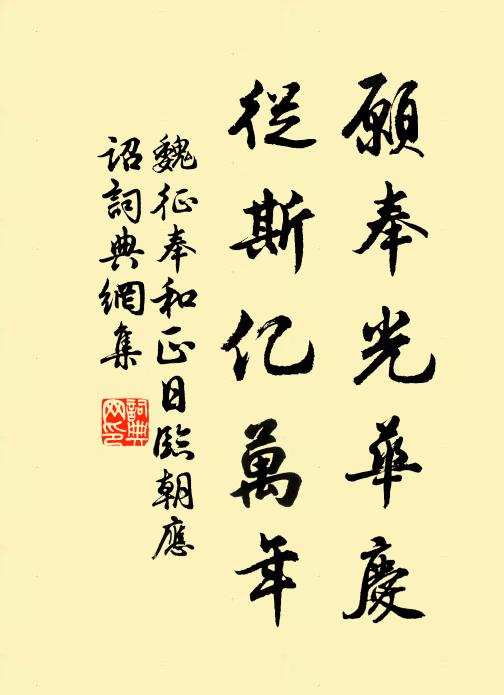 願奉光華慶
從斯亿萬年
魏征奉和正日臨朝應
詔詞典網集
詞典
网印